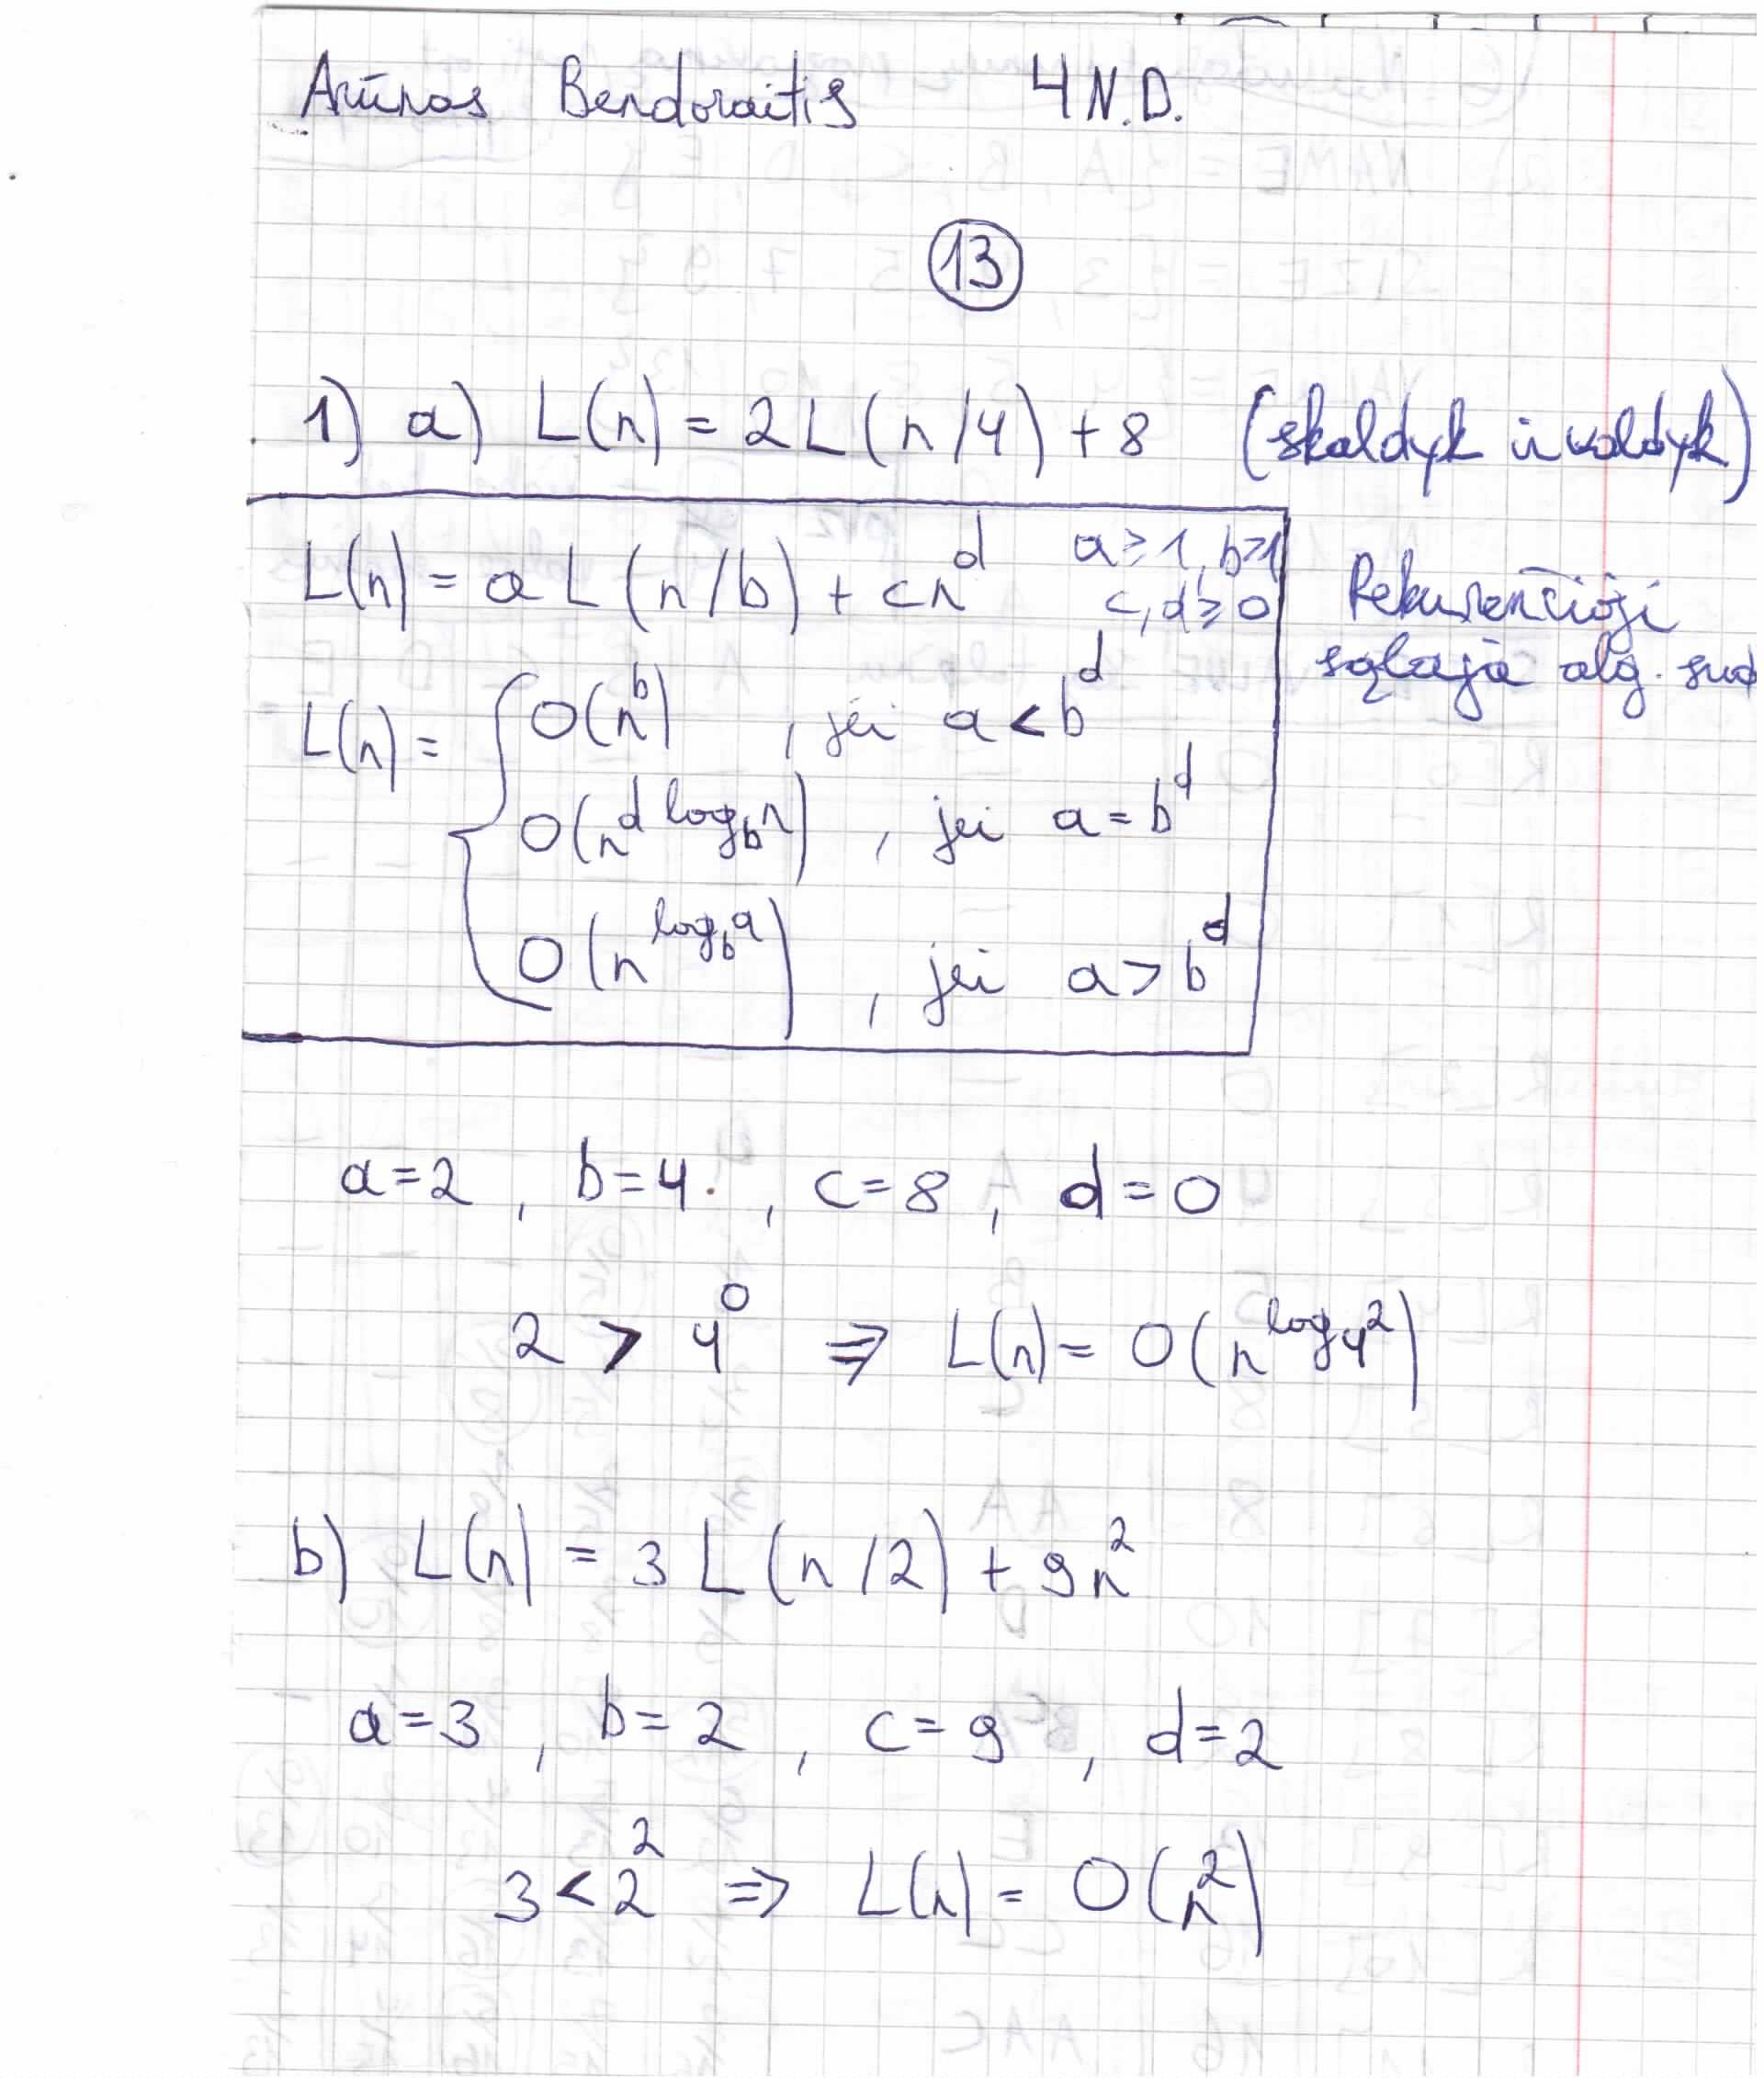 Arūnas Bendoraitis 4 N.D.
13
1) a) L(n) = 2L(n/4) + 8 (skaldyk ir valdyk)
L(n) = aL(n/b) + cn^d a≥1, b>1
c, d ≥ 0
Rekurenčioji
sąlaja alg.
L(n) = { O(n^b) , jei a < b^d
O(n^d log_b n) , jei a = b^d
O(n^log_b a) , jei a > b^d
a=2 , b=4 , c=8 , d=0
2 > 4^0 ⇒ L(n) = O(n^log_4 2)
b) L(n) = 3L(n/2) + 9n^2
a=3 , b=2 , c=9 , d=2
3 < 2^2 ⇒ L(n) = O(n^2)